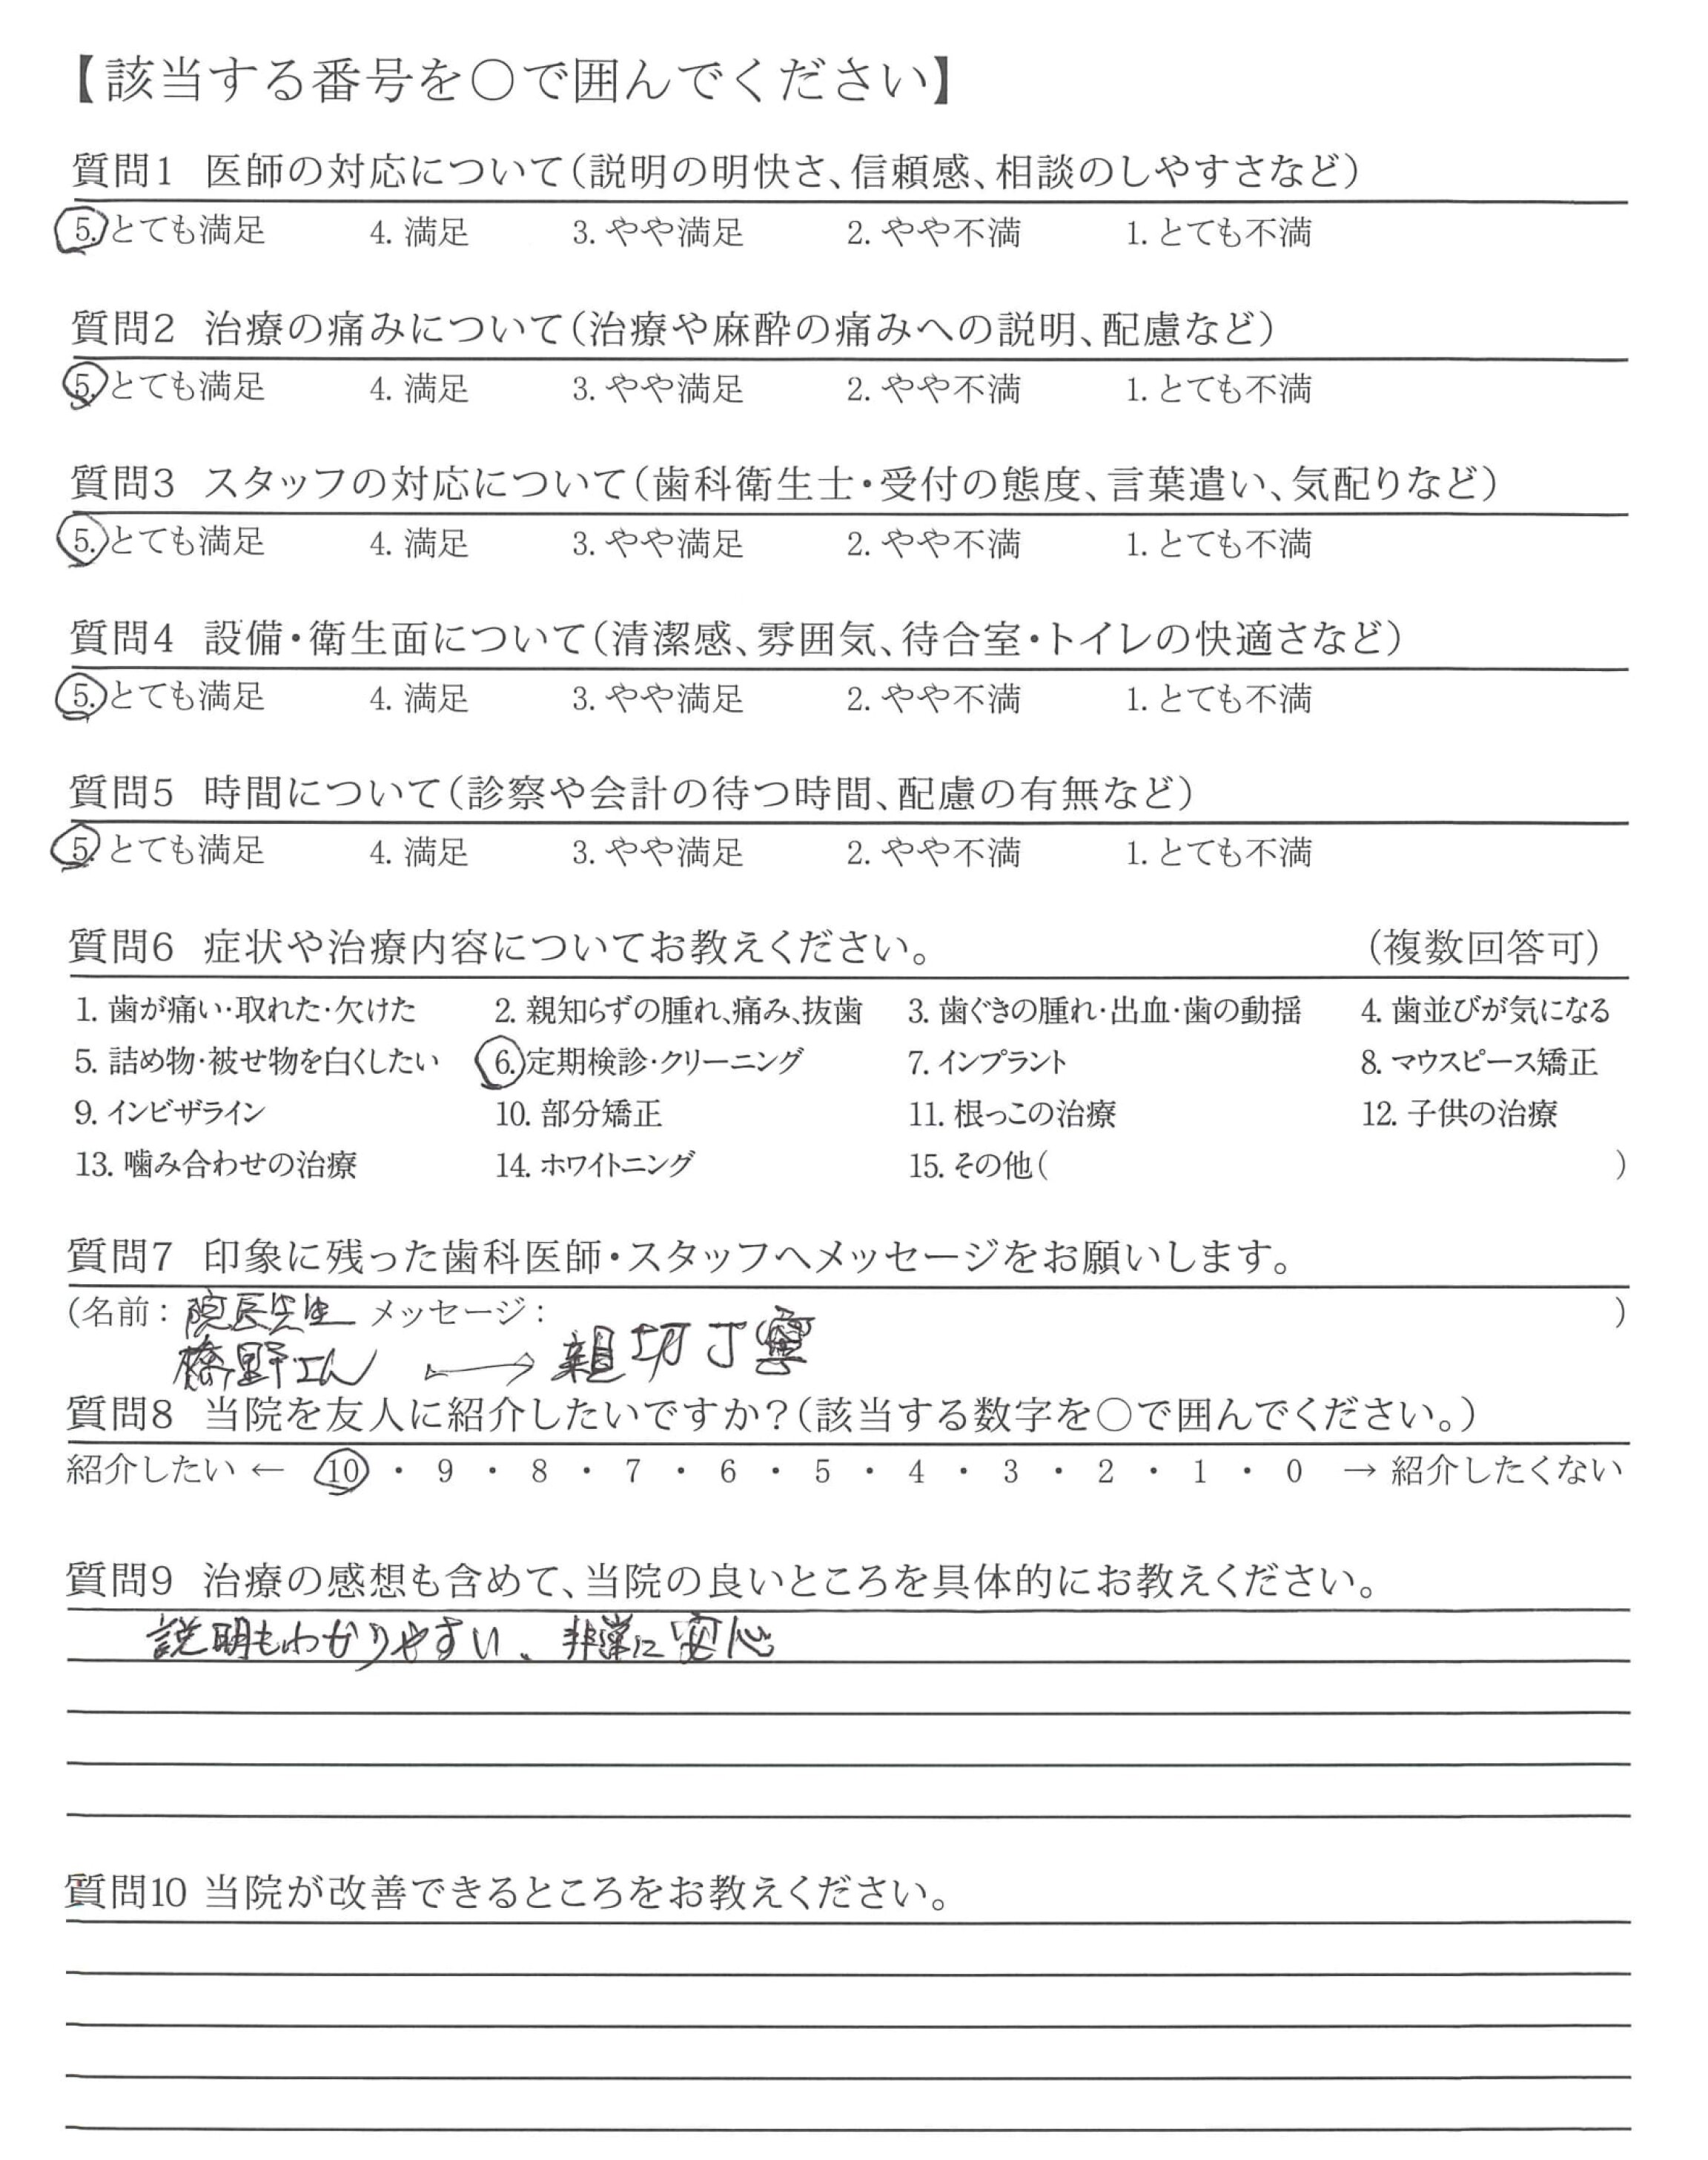 【該当する番号を○で囲んでください】
質問1 医師の対応について(説明の明快さ、信頼感、相談のしやすさなど)
5. とても満足 4. 満足 3. やや満足 2. やや不満 1. とても不満
質問2 治療の痛みについて(治療や麻酔の痛みへの説明、配慮など)
5. とても満足 4. 満足 3. やや満足 2. やや不満 1. とても不満
質問3 スタッフの対応について(歯科衛生士・受付の態度、言葉遣い、気配りなど)
5. とても満足 4. 満足 3. やや満足 2. やや不満 1. とても不満
質問4 設備・衛生面について(清潔感、雰囲気、待合室・トイレの快適さなど)
5. とても満足 4. 満足 3. やや満足 2. やや不満 1. とても不満
質問5 時間について(診察や会計の待つ時間、配慮の有無など)
5. とても満足 4. 満足 3. やや満足 2. やや不満 1. とても不満
質問6 症状や治療内容についてお教えください。 (複数回答可)
1. 歯が痛い・取れた・欠けた 2. 親知らずの腫れ、痛み、抜歯 3. 歯ぐきの腫れ・出血・歯の動揺 4. 歯並びが気になる
5. 詰め物・被せ物を白くしたい 6. 定期検診・クリーニング 7. インプラント 8. マウスピース矯正
9. インビザライン 10. 部分矯正 11. 根っこの治療 12. 子供の治療
13. 噛み合わせの治療 14. ホワイトニング 15. その他( )
質問7 印象に残った歯科医師・スタッフへメッセージをお願いします。
(名前: 院長先生 メッセージ: )
橋野さん ←→ 親切丁寧
質問8 当院を友人に紹介したいですか?(該当する数字を○で囲んでください。)
紹介したい ← 10 ・ 9 ・ 8 ・ 7 ・ 6 ・ 5 ・ 4 ・ 3 ・ 2 ・ 1 ・ 0 → 紹介したくない
質問9 治療の感想も含めて、当院の良いところを具体的にお教えください。
説明もわかりやすい、非常に安心
質問10 当院が改善できるところをお教えください。